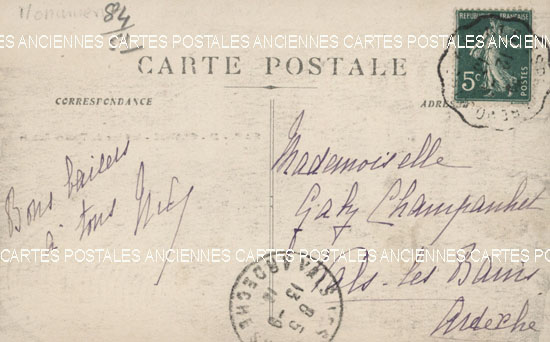 Monnier 84
CARTES POSTALES ANCIENNES CARTES POSTALES ANCIENNES CARTES POSTALES ANCIENNES
CARTE POSTALE
5c
POSTES
CORRESPONDANCE
ADRESSE
Bons baisers
à tous
Mademoiselle
Gaby Champanhet
Vals-les-Bains
Ardèche
CARTES POSTALES ANCIENNES CARTES POSTALES ANCIENNES CARTES POSTALES ANCIENNES
VALS
ARDECHE
8-5
13-9
14